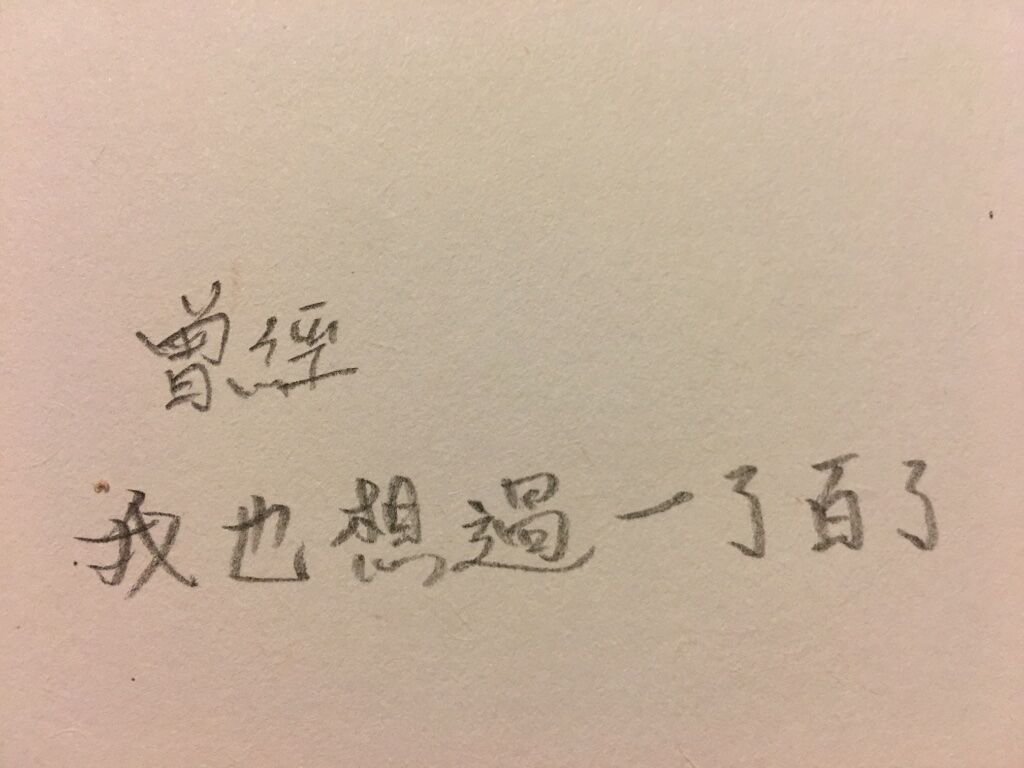 曾經
我也想過一了百了